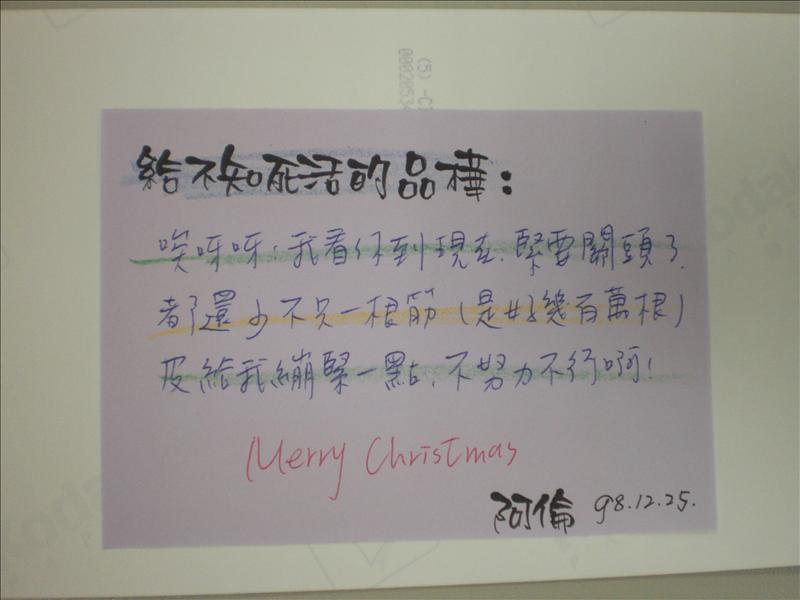 (5) -C
給不知死活的品樺：
唉呀呀，我看你到現在，緊要關頭了，
都還少不只一根筋（是好幾百萬根）
皮給我繃緊一點，不努力不行啊！
Merry Christmas
阿倫 98.12.25.